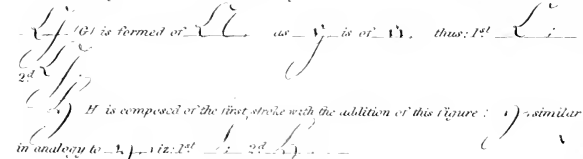 (G) is formed of as is of thus: 1st
2d
H is composed of the first stroke with the addition of this figure: similar
in analogy to viz: 1st 2d